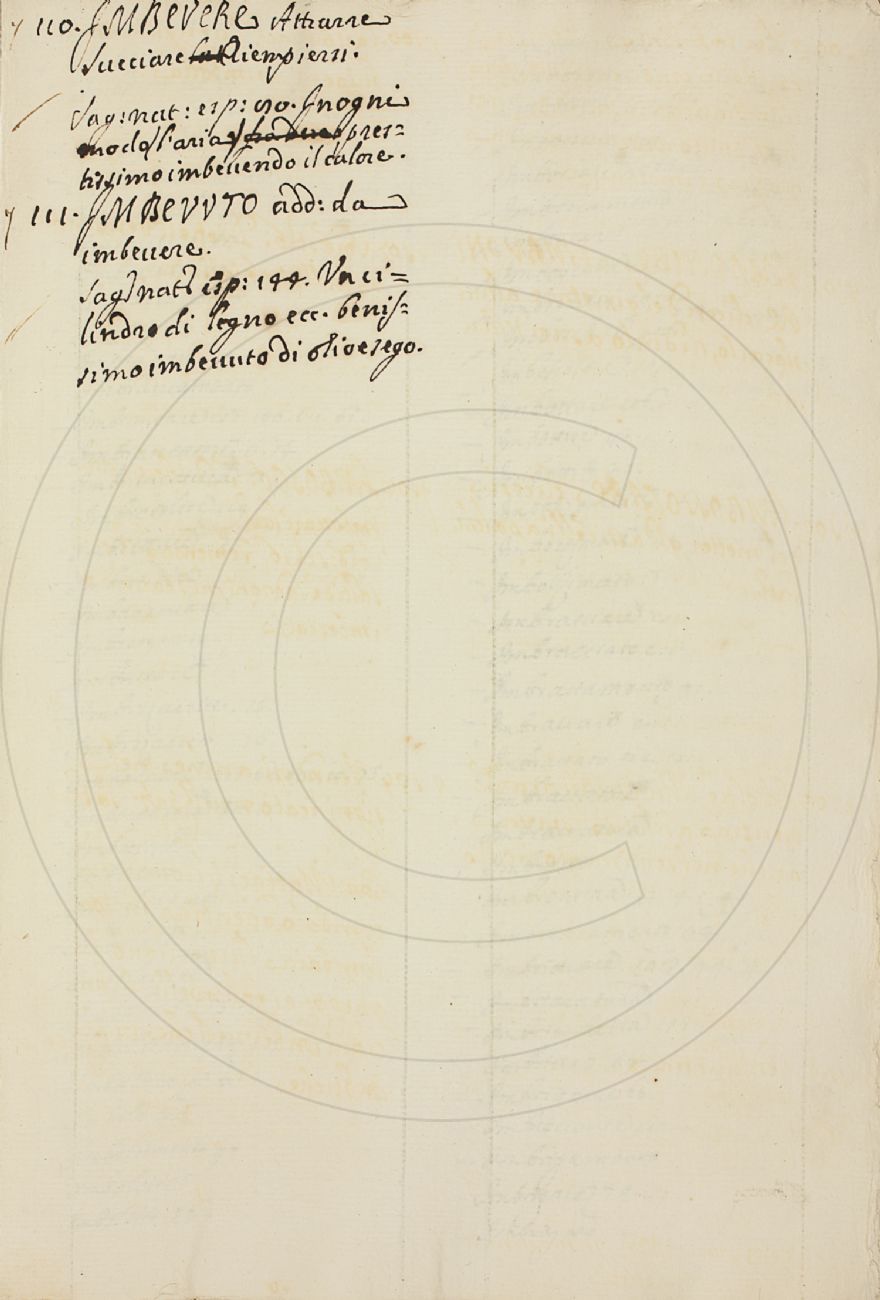 110. IMBEVERE Attrarre
Succiare Riempiersi.
Sag: nat: esp: 90. In ogni
modo l'aria pres=
tissimo imbevendo il calore.
111. IMBEVVTO add: da
imbevere.
Sag: nat: esp: 144. Vn ci=
lindro di legno ecc. benis=
simo imbevuto di olio e sego.